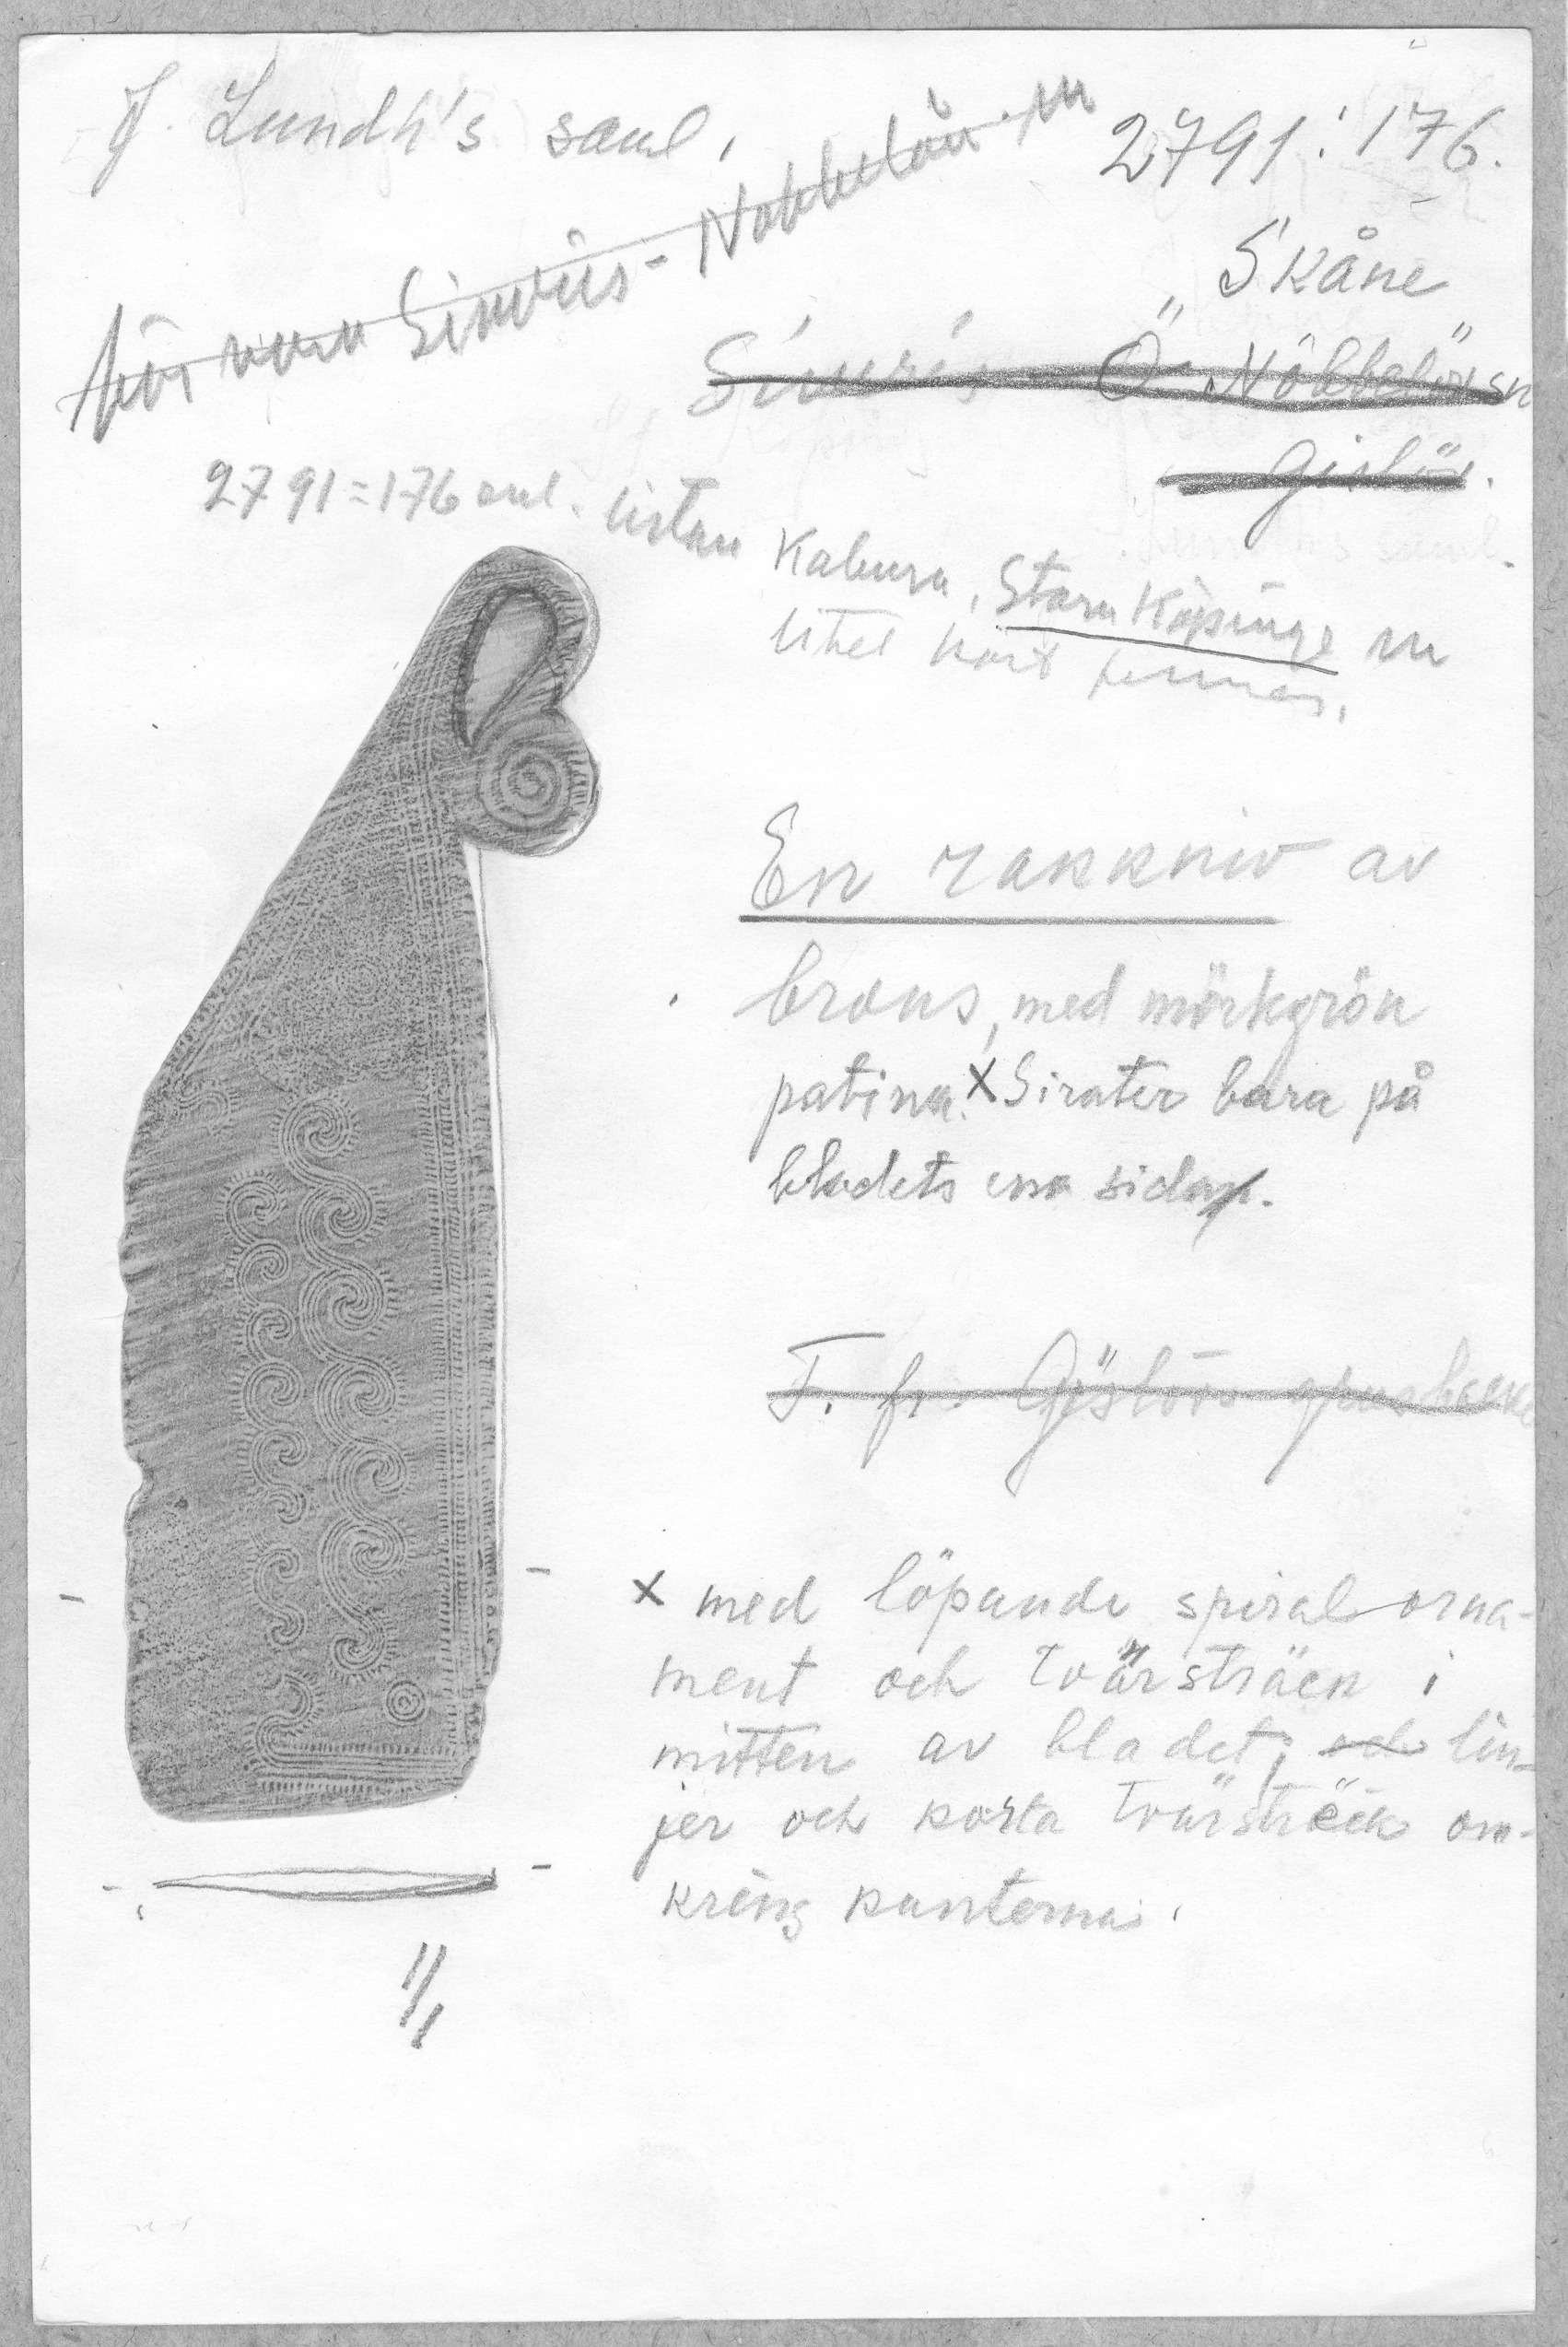 J. Lundh's saml.
2791:176.
bör vara Simris-Nöbbelöv sn
Skåne
Simris Ö. Nöbbelöv sn
Gislöv.
2791=176 enl. listan
Kabusa, Stora Köpinge sn
En rakkniv av
brons, med mörkgrön
patina. X Sirater bara på
bladets ena sida.
F. fr. Gislövs
X med löpande spiral orna-
ment och tvärsträck i
mitten av bladet; och lin-
jer och korta tvärsträck om-
kring kanterna.
1/1